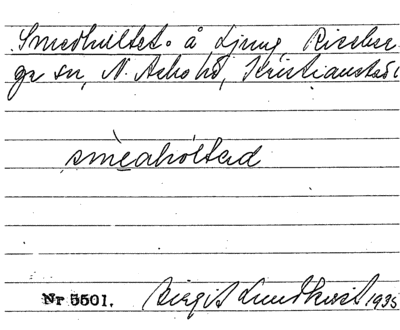 Smedhultet. å Ljung, Riseber-
ga sn, N. Åsbo hd, Kristianstads l
smèahòltad
Nr 5501. Birgit Lundkvist 1935